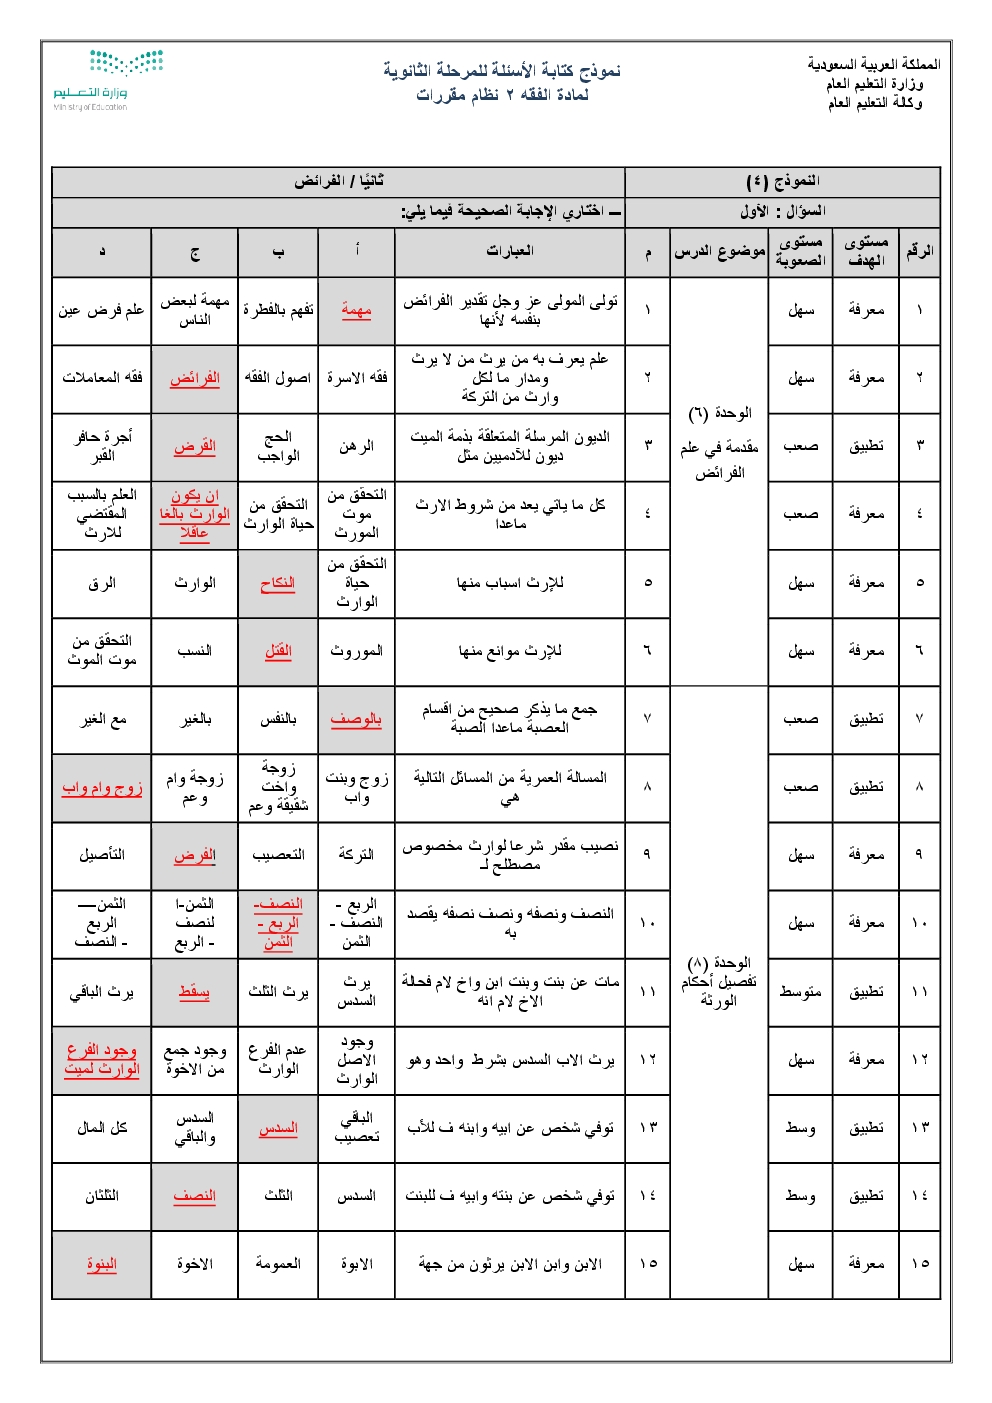 المملكة العربية السعودية
وزارة التعليم العام
وكالة التعليم العام
نموذج كتابة الأسئلة للمرحلة الثانوية
لمادة الفقه ٢ نظام مقررات
وزارة التعليم
Ministry of Education
النموذج (٤)
ثانيًا / الفرائض
السؤال : الأول
– اختاري الإجابة الصحيحة فيما يلي:
الرقم
مستوى
الهدف
مستوى
الصعوبة
موضوع الدرس
م
العبارات
أ
ب
ج
د
١
معرفة
سهل
الوحدة (٦)
مقدمة في علم
الفرائض
١
تولى المولى عز وجل تقدير الفرائض
بنفسه لأنها
مهمة
تفهم بالفطرة
مهمة لبعض
الناس
علم فرض عين
٢
معرفة
سهل
٢
علم يعرف به من يرث من لا يرث
ومدار ما لكل
وارث من التركة
فقه الاسرة
اصول الفقه
الفرائض
فقه المعاملات
٣
تطبيق
صعب
٣
الديون المرسلة المتعلقة بذمة الميت
ديون للآدميين مثل
الرهن
الحج
الواجب
القرض
أجرة حافر
القبر
٤
معرفة
صعب
٤
كل ما ياتي يعد من شروط الارث
ماعدا
التحقق من
موت
المورث
التحقق من
حياة الوارث
ان يكون
الوارث بالغا
عاقلا
العلم بالسبب
المقتضي
للارث
٥
معرفة
سهل
٥
للإرث اسباب منها
التحقق من
حياة
الوارث
النكاح
الوارث
الرق
٦
معرفة
سهل
٦
للإرث موانع منها
الموروث
القتل
النسب
التحقق من
موت الموث
٧
تطبيق
صعب
الوحدة (٨)
تفصيل أحكام
الورثة
٧
جمع ما يذكر صحيح من اقسام
العصبة ماعدا الصبة
بالوصف
بالنفس
بالغير
مع الغير
٨
تطبيق
صعب
٨
المسالة العمرية من المسائل التالية
هي
زوج وبنت
واب
زوجة
واخت
شقيقة وعم
زوجة وام
وعم
زوج وام واب
٩
معرفة
سهل
٩
نصيب مقدر شرعا لوارث مخصوص
مصطلح لـ
التركة
التعصيب
الفرض
التأصيل
١٠
معرفة
سهل
١٠
النصف ونصفه ونصف نصفه يقصد
به
الربع -
النصف -
الثمن
النصف-
الربع -
الثمن
الثمن-ا
لنصف
- الربع
الثمن–
الربع
- النصف
١١
تطبيق
متوسط
١١
مات عن بنت وبنت ابن واخ لام فحالة
الاخ لام انه
يرث
السدس
يرث الثلث
يسقط
يرث الباقي
١٢
معرفة
سهل
١٢
يرث الاب السدس بشرط واحد وهو
وجود
الاصل
الوارث
عدم الفرع
الوارث
وجود جمع
من الاخوة
وجود الفرع
الوارث لميت
١٣
تطبيق
وسط
١٣
توفي شخص عن ابيه وابنه ف للأب
الباقي
تعصيب
السدس
السدس
والباقي
كل المال
١٤
تطبيق
وسط
١٤
توفي شخص عن بنته وابيه ف للبنت
السدس
الثلث
النصف
الثلثان
١٥
معرفة
سهل
١٥
الابن وابن الابن يرثون من جهة
الابوة
العمومة
الاخوة
البنوة